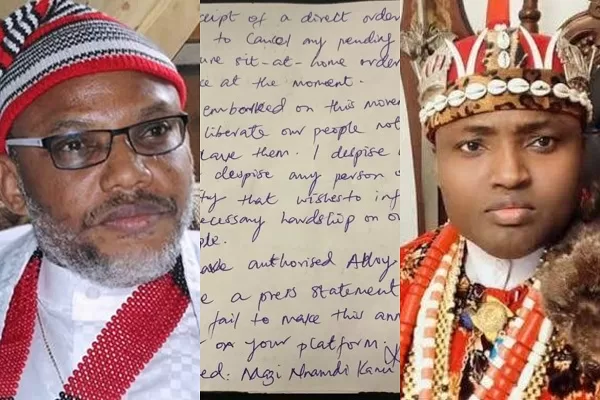 ceipt of a direct order
to Cancel any pending
ure sit-at-home order
ce at the moment.
embarked on this movem
liberate our people not
lave them. I despise
despise any person o
ty that wishes to inf
ecessary hardship on o
ple.
ave authorised A
e a press statement
fail to make this ann
r on your platform.
ed: Mazi Nnamdi Kanu